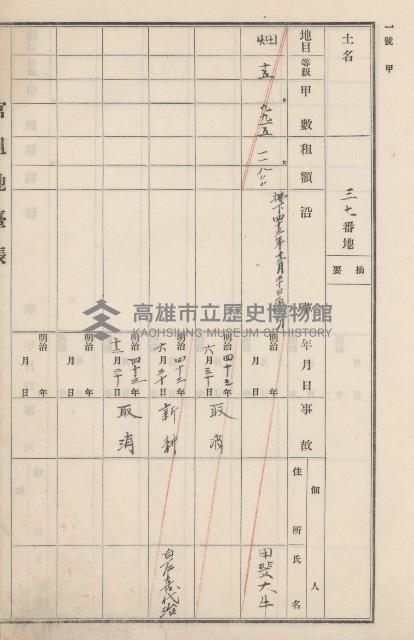 一號 甲
土名
三七番地
摘要
地目 等級 甲數 租額 沿革 年月日 事故 個人 住所 氏名
畑 十五 九九一五 一一八〇〇
明治 年 月 日
甲斐大牛
明治四十三年六月三十日 取消
明治四十三年六月三十日 新耕
白石喜代治
明治四十三年十二月二十日 取消
明治 年 月 日
明治 年 月 日
官租地臺帳
高雄市立歷史博物館
KAOHSIUNG MUSEUM OF HISTORY